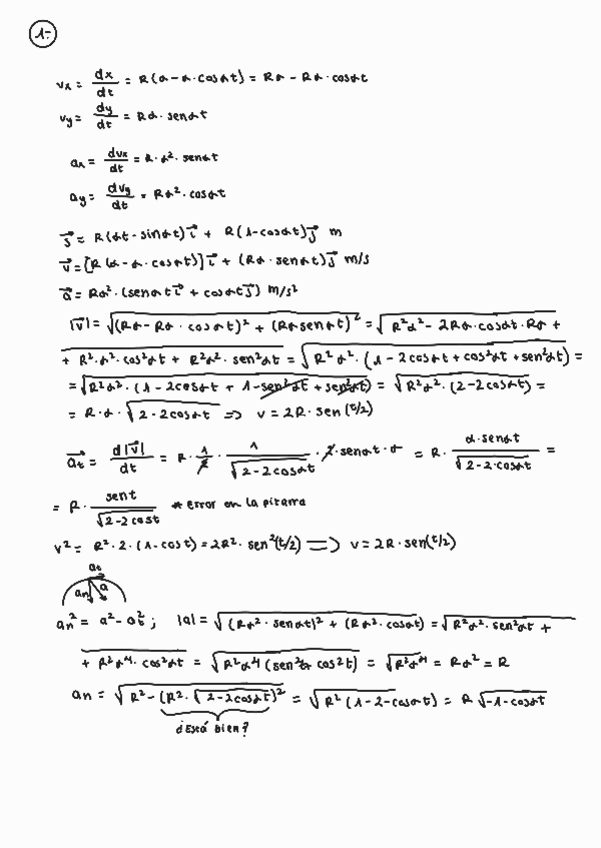 1-
vx = dx/dt = R(α - α·cosαt) = Rα - Rα·cosαt
vy = dy/dt = Rα·senαt
ax = dvx/dt = R·α²·senαt
ay = dvy/dt = Rα²·cosαt
s⃗ = R(αt - sinαt)i⃗ + R(1-cosαt)j⃗ m
v⃗ = [R(α - α·cosαt)]i⃗ + (Rα·senαt)j⃗ m/s
a⃗ = Rα²·(senαt i⃗ + cosαt j⃗) m/s²
|v⃗| = √((Rα - Rα·cosαt)² + (Rαsenαt)²) = √(R²α² - 2Rα·cosαt·Rα +
+ R²·α²·cos²αt + R²α²·sen²αt) = √(R²α²·(1 - 2cosαt + cos²αt + sen²αt)) =
= √(R²α²·(1 - 2cosαt + 1 - sen²αt + sen²αt)) = √(R²α²·(2-2cosαt)) =
= R·α·√(2-2cosαt) => v = 2R·sen(t/2)
at⃗ = d|v⃗|/dt = R·1/2·1/√(2-2cosαt)·2·senαt·α = R·α·senαt/√(2-2·cosαt) =
= R·sent/√(2-2cost) * error en la pizarra
v² = R²·2·(1-cost) = 2R²·sen²(t/2) => v = 2R·sen(t/2)
at
an a
an² = a² - at²; |a| = √((Rα²·senαt)² + (Rα²·cosαt) = √(R²α²·sen²αt +
+ R²α⁴·cos²αt) = √(R²α⁴(sen²t+cos²t)) = √(R²α⁴) = Rα² = R
an = √(R² - (R²·√(2-2cosαt))²) = √(R²(1-2-cosαt)) = R√(-1-cosαt)
¿Está bien?